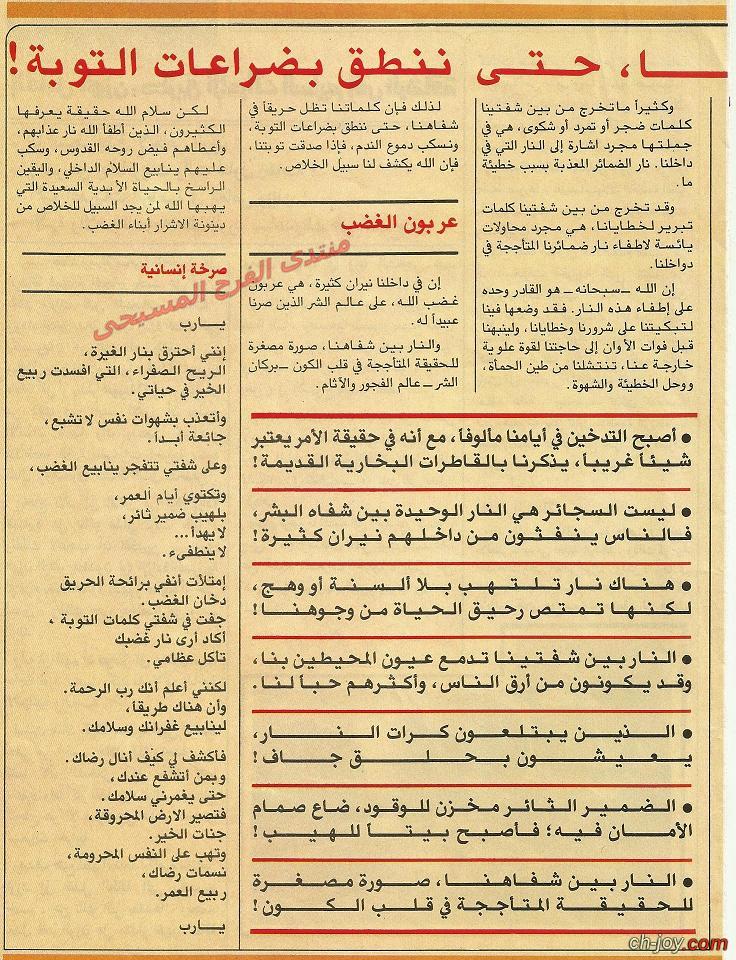 ـا، حتى ننطق بضراعات التوبة!
وكثيراً ما تخرج من بين شفتينا
كلمات ضجر أو تمرد أو شكوى، هي في
جملتها مجرد اشارة إلى النار التي في
داخلنا. نار الضمائر المعذبة بسبب خطيئة
ما.
وقد تخرج من بين شفتينا كلمات
تبرير لخطايانا، هي مجرد محاولات
يائسة لاطفاء نار ضمائرنا المتأججة في
دواخلنا.
إن الله ــ سبحانه ــ هو القادر وحده
على إطفاء هذه النار. فقد وضعها فينا
لتبكيتنا على شرورنا وخطايانا، ولينبهنا
قبل فوات الأوان إلى حاجتنا لقوة علوية
خارجة عنا، تنتشلنا من طين الحمأة،
ووحل الخطيئة والشهوة.
لذلك فإن كلماتنا تظل حريقاً في
شفاهنا، حتى ننطق بضراعات التوبة،
ونسكب دموع الندم، فإذا صدقت توبتنا،
فإن الله يكشف لنا سبيل الخلاص.
عربون الغضب
إن في داخلنا نيران كثيرة، هي عربون
غضب الله، على عالم الشر الذين صرنا
عبيداً له.
والنار بين شفاهنا، صورة مصغرة
للحقيقة المتأججة في قلب الكون ــ بركان
الشر ــ عالم الفجور والآثام.
● أصبح التدخين في أيامنا مألوفاً، مع أنه في حقيقة الأمر يعتبر
شيئاً غريباً، يذكرنا بالقاطرات البخارية القديمة!
● ليست السجائر هي النار الوحيدة بين شفاه البشر،
فالناس ينفثون من داخلهم نيران كثيرة!
● هناك نار تلتهب بلا ألسنة أو وهج،
لكنها تمتص رحيق الحياة من وجوهنا!
● النار بين شفتينا تدمع عيون المحيطين بنا،
وقد يكونون من أرق الناس، وأكثرهم حباً لنا.
● الذين يبتلعون كرات النار،
يعيشون بحلق جاف!
● الضمير الثائر مخزن للوقود، ضاع صمام
الأمان فيه؛ فأصبح بيتاً للهيب!
● النار بين شفاهنا، صورة مصغرة
للحقيقة المتأججة في قلب الكون!
لكن سلام الله حقيقة يعرفها
الكثيرون، الذين أطفأ الله نار عذابهم،
وأعطاهم فيض روحه القدوس، وسكب
عليهم ينابيع السلام الداخلي، واليقين
الراسخ بالحياة الأبدية السعيدة التي
يهبها الله لمن يجد السبيل للخلاص من
دينونة الاشرار أبناء الغضب.
صرخة إنسانية
يــارب
إنني أحترق بنار الغيرة،
الريح الصفراء، التي افسدت ربيع
الخير في حياتي.
وأتعذب بشهوات نفس لا تشبع،
جائعة أبداً.
وعلى شفتي تتفجر ينابيع الغضب،
وتكتوي أيام العمر،
بلهيب ضمير ثائر،
لا يهدأ...
لا ينطفىء.
إمتلأت أنفي برائحة الحريق
دخان الغضب.
جفت في شفتي كلمات التوبة،
أكاد أرى نار غضبك
تأكل عظامي.
لكنني أعلم أنك رب الرحمة.
وأن هناك طريقاً،
لينابيع غفرانك وسلامك.
فأكشف لي كيف أنال رضاك.
وبمن أتشفع عندك،
حتى يغمرني سلامك.
فتصير الارض المحروقة،
جنات الخير.
وتهب على النفس المحرومة،
نسمات رضاك،
ربيع العمر.
يــارب
منتدى الفرح المسيحى
ch-joy.com